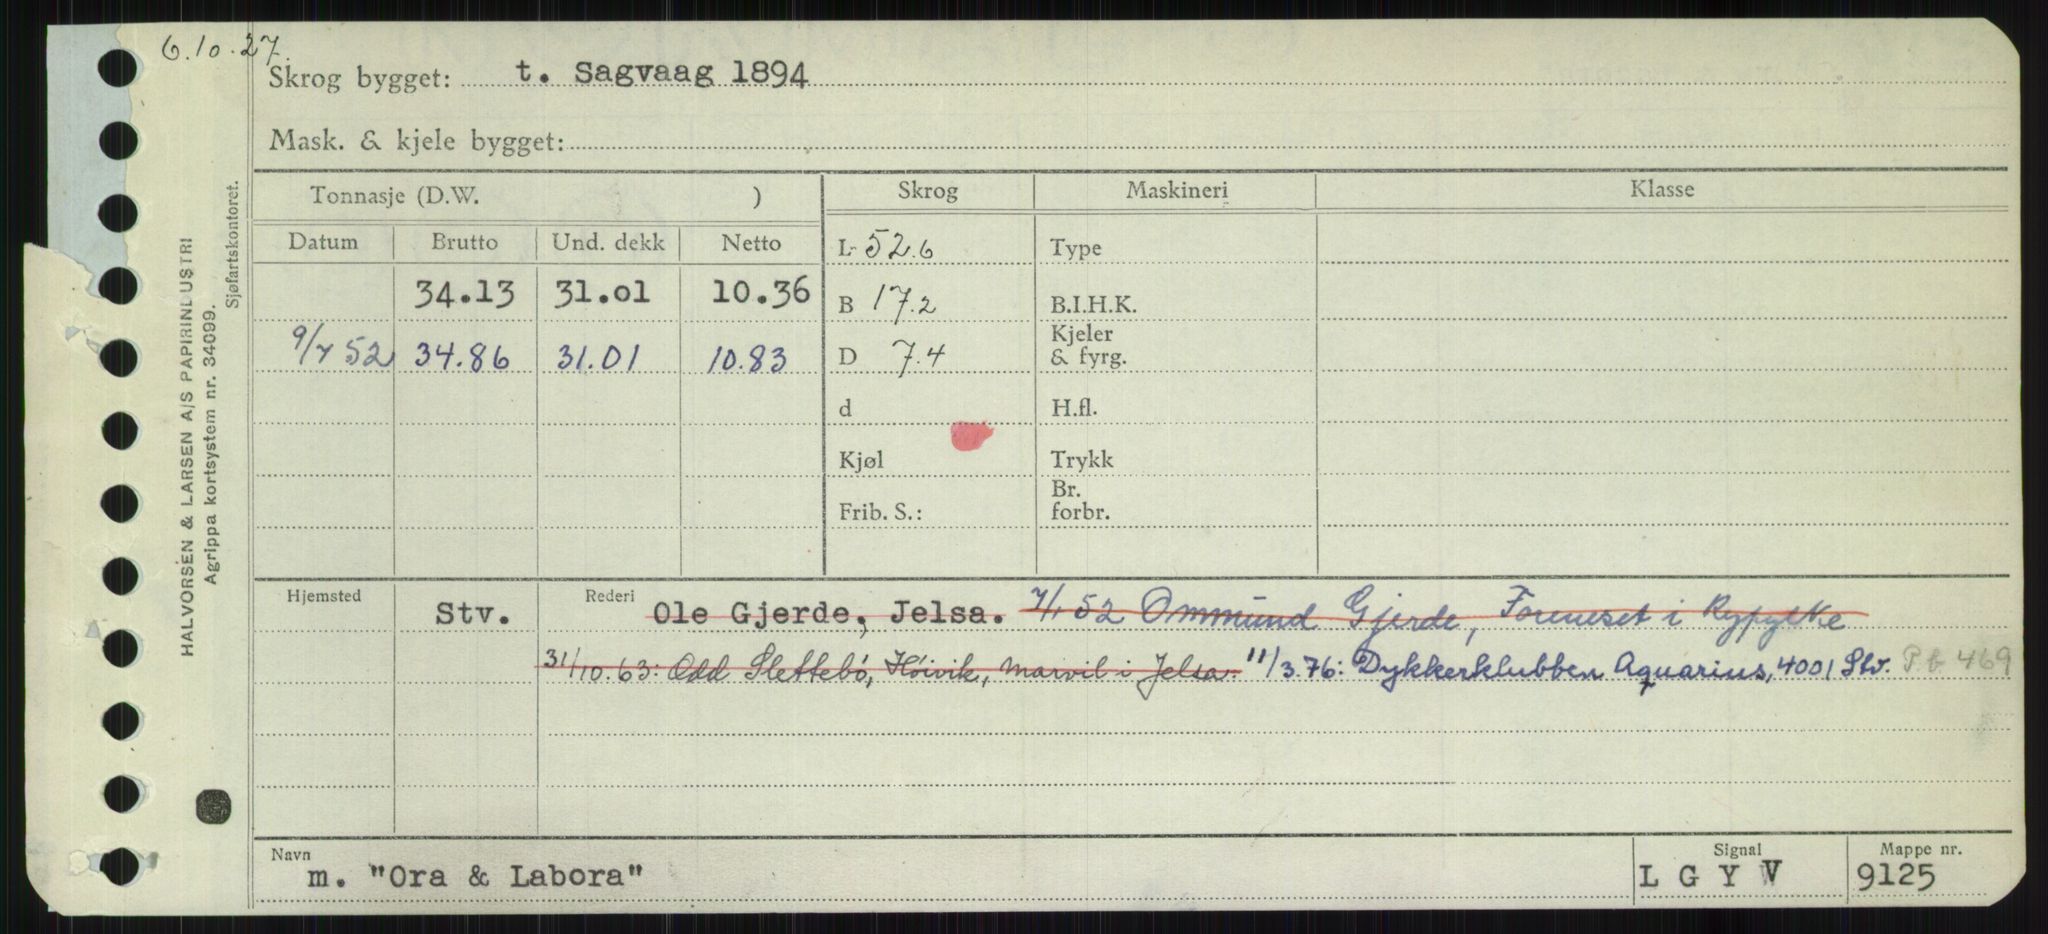 6.10.27
Skrog bygget: t. Sagvaag 1894
Mask. & kjele bygget:
Tonnasje (D.W. ) Skrog Maskineri Klasse
Datum Brutto Und. dekk Netto
L 52.6 Type
34.13 31.01 10.36
B 17.2 B.I.H.K.
9/7 52 34.86 31.01 10.83
D 7.4 Kjeler & fyrg.
d H.fl.
Kjøl Trykk
Frib. S.: Br. forbr.
Hjemsted Stv. Rederi Ole Gjerde, Jelsa. 7/1 52 Ommund Gjerde, Foreneset i Ryfylke
31/10.63: Odd Slettebö, Höivik, Marvik i Jelsa. 11/3.76: Dykkerklubben Aquarius, 4001 Stv. Pb 469
Navn m. "Ora & Labora"
Signal L G Y V
Mappe nr. 9125
HALVORSEN & LARSEN A/S PAPIRINDUSTRI
Agrippa kortsystem nr. 34099.
Sjøfartskontoret.